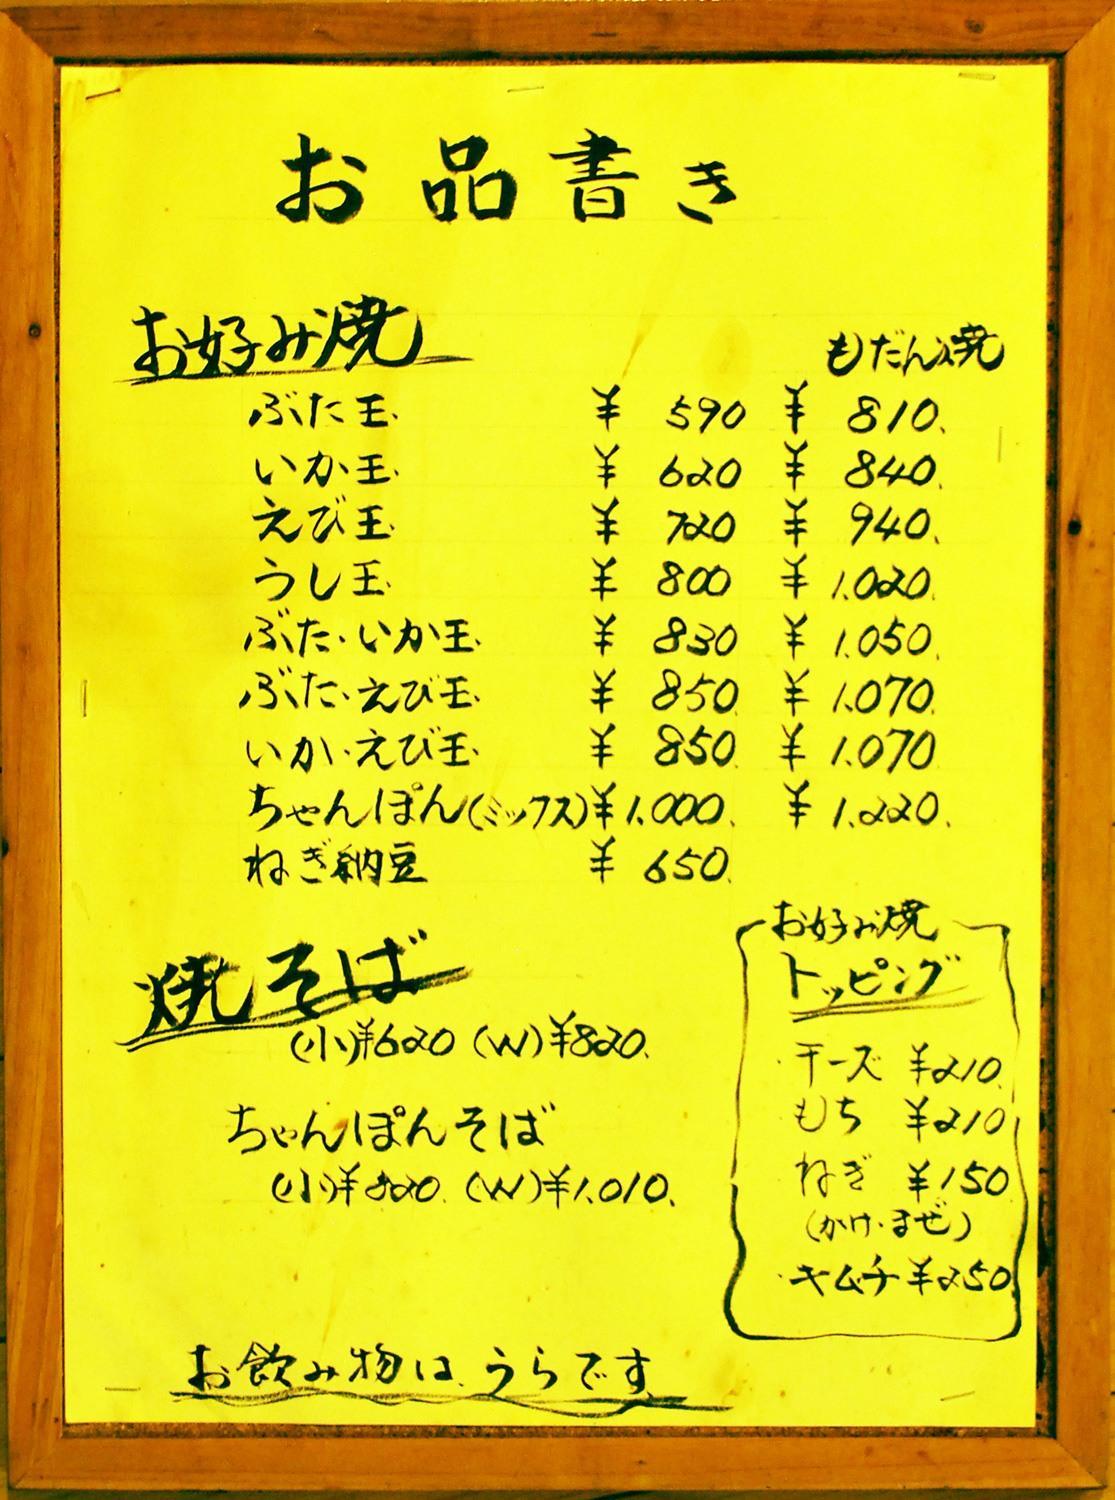 お品書き
お好み焼 もだん焼
ぶた玉 ¥590 ¥810.
いか玉 ¥620 ¥840.
えび玉 ¥720 ¥940.
うし玉 ¥800 ¥1.020.
ぶた・いか玉 ¥830 ¥1.050.
ぶた・えび玉 ¥850. ¥1.070.
いか・えび玉 ¥850. ¥1.070
ちゃんぽん(ミックス) ¥1.000. ¥1.220.
ねぎ納豆 ¥650.
焼そば
(小)¥620 (W)¥820.
ちゃんぽんそば
(小)¥820. (W)¥1.010.
お好み焼
トッピング
・チーズ ¥210.
もち ¥210
ねぎ ¥150
(かけ・まぜ)
・キムチ ¥250
お飲み物は、うらです